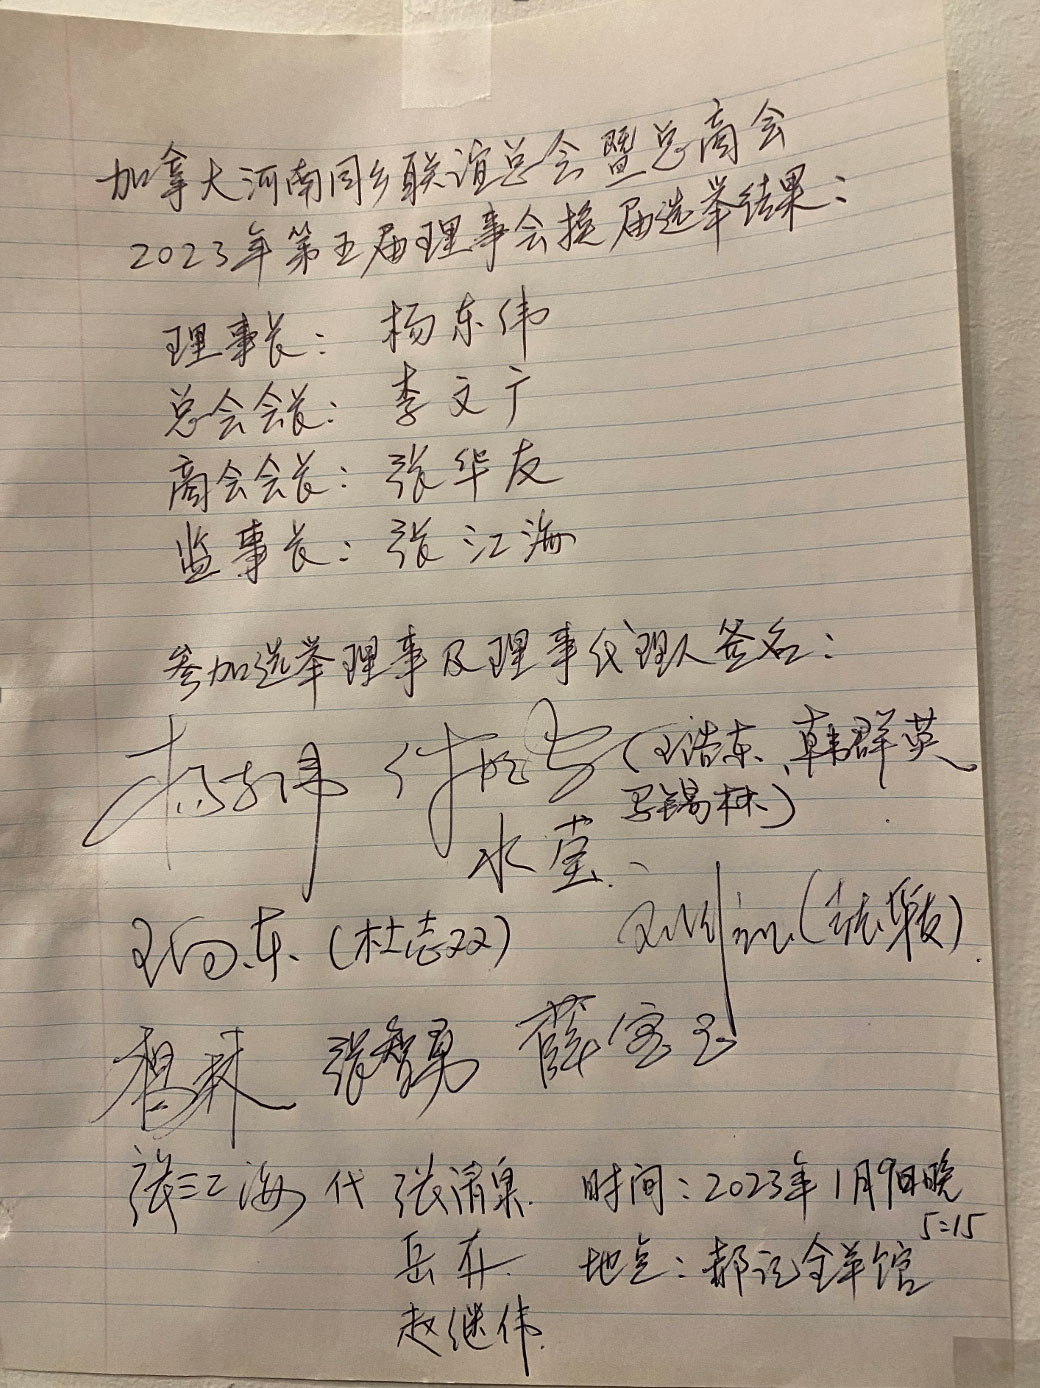 加拿大河南同乡联谊总会暨总商会
2023年第五届理事会换届选举结果：
理事长：杨东伟
总会会长：李文广
商会会长：张华友
监事长：张江海
参加选举理事及理事代理人签名：
杨东伟 （王浩东、韩群英
马锡林）
水莹、
王向东（杜志双） （张华友）
张智勇 薛宝玉
张江海代 张清泉 时间：2023年1月9日晚
5:15
岳 地点：郝记全羊馆
赵继伟